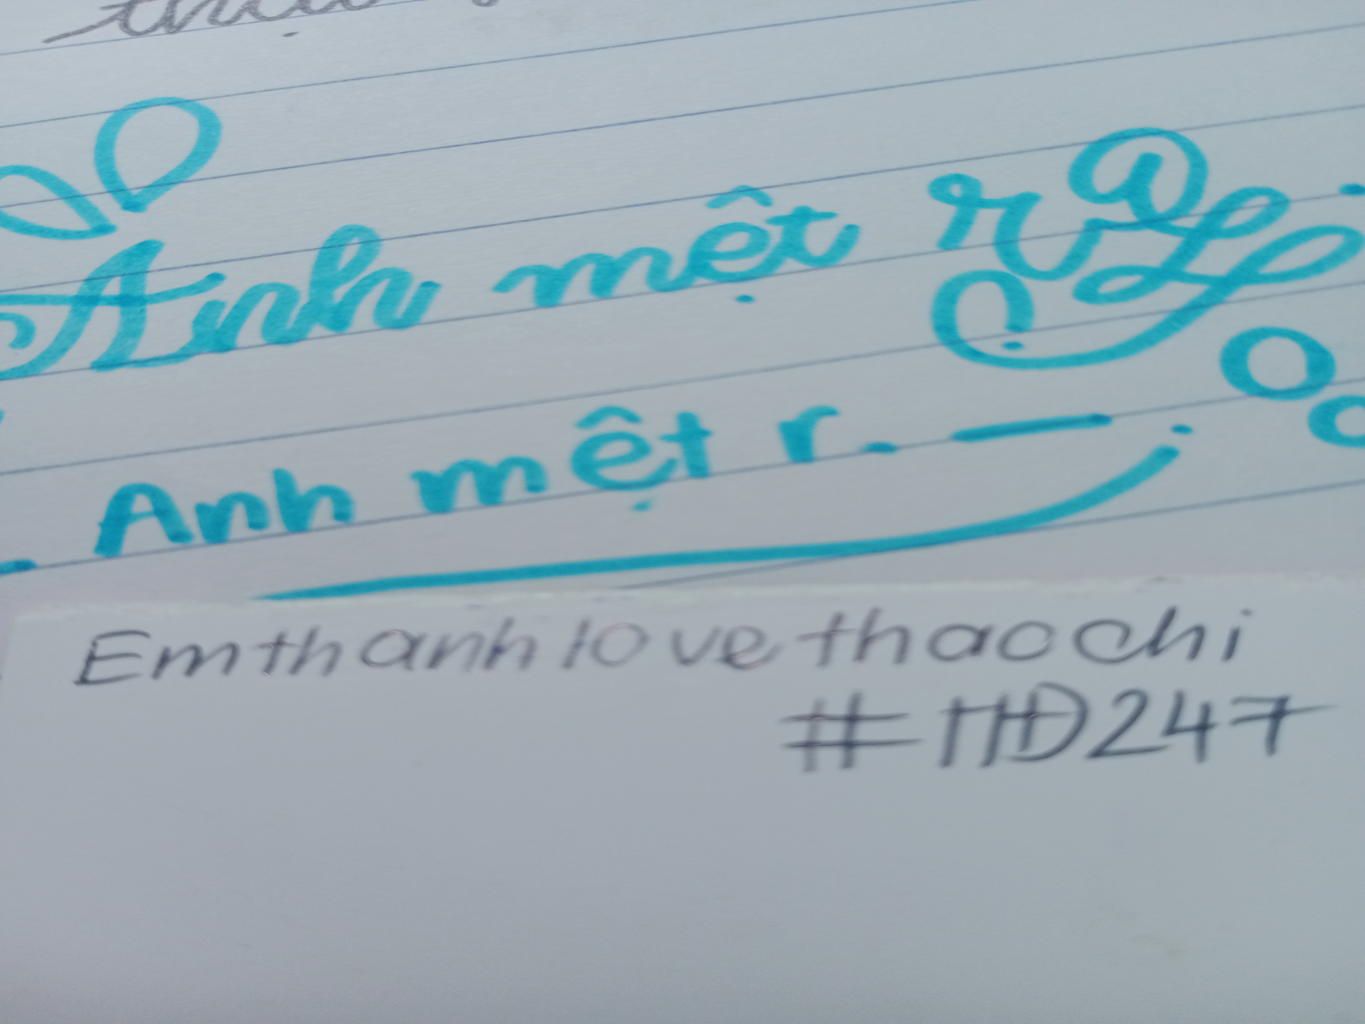 Anh mệt r
Anh mệt r. —
Emthanh love thaochi
#HĐ247